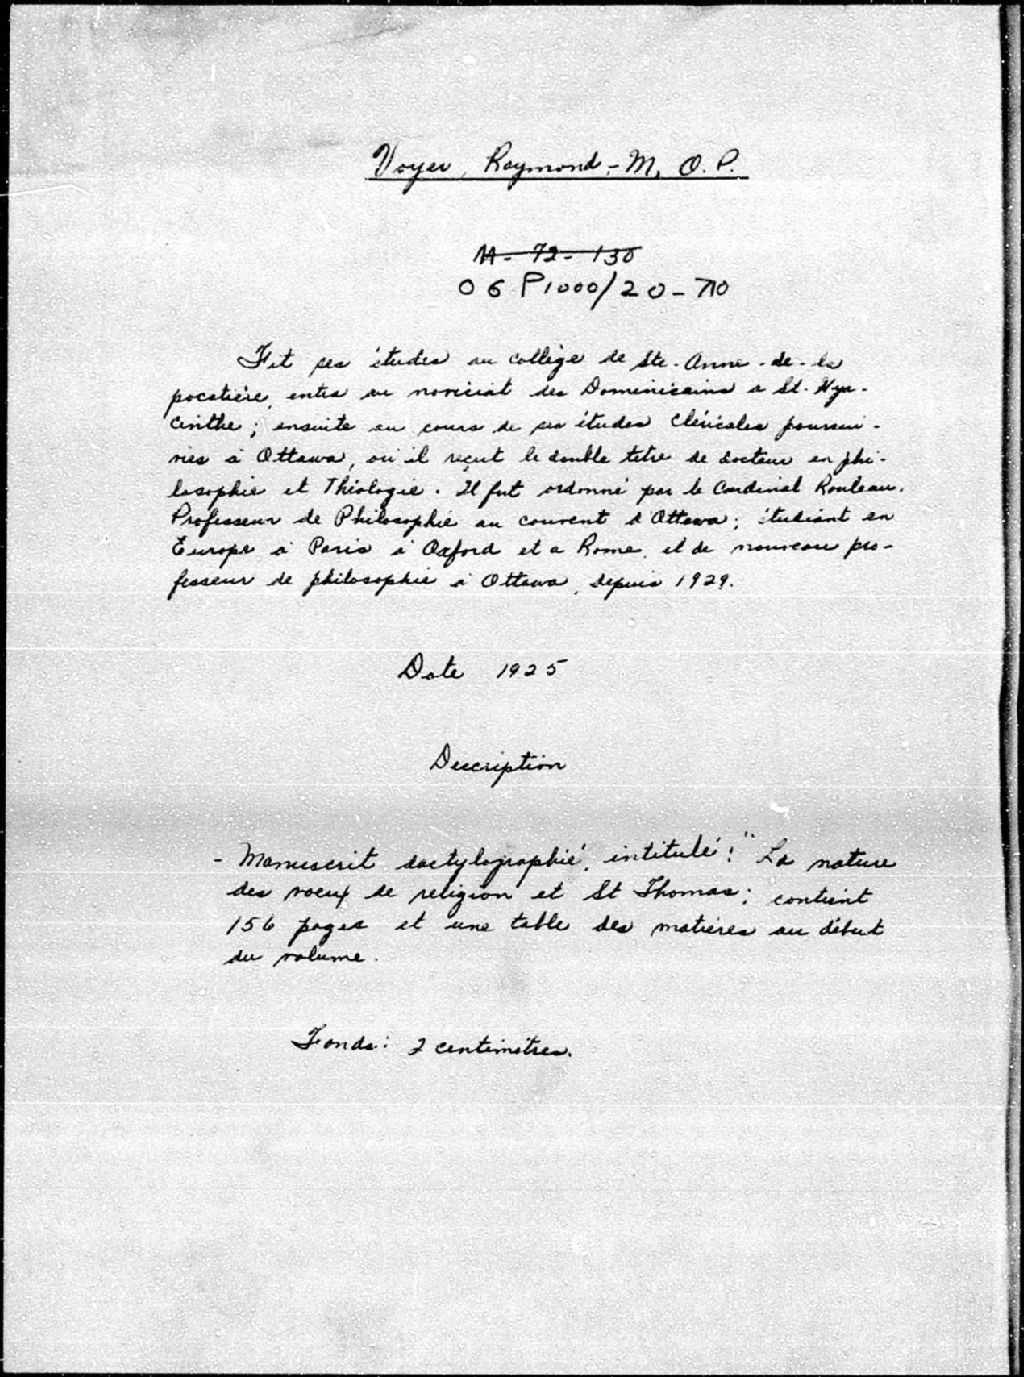 Voyer, Raymond,-M, O.P.
M-72-130
06 P1000/20-710
Fit ses études au collège de Ste-Anne-de-la
pocatière, entra au noviciat des Dominicains a St-Hya-
cinthe; ensuite au cours de ses études cléricales poursui-
vies à Ottawa, où il reçut le double titre de docteur en phi-
losophie et Théologie. Il fut ordonné par le Cardinal Rouleau.
Professeur de Philosophie au couvent d'Ottawa; étudiant en
Europe à Paris à Oxford et a Rome, et de nouveau pro-
fesseur de philosophie à Ottawa, depuis 1929.
Date 1925
Description
- Manuscrit dactylographié, intitulé: "La nature
des voeux de religion et St Thomas; contient
156 pages et une table des matières au début
du volume.
Fonds: 2 centimètres.